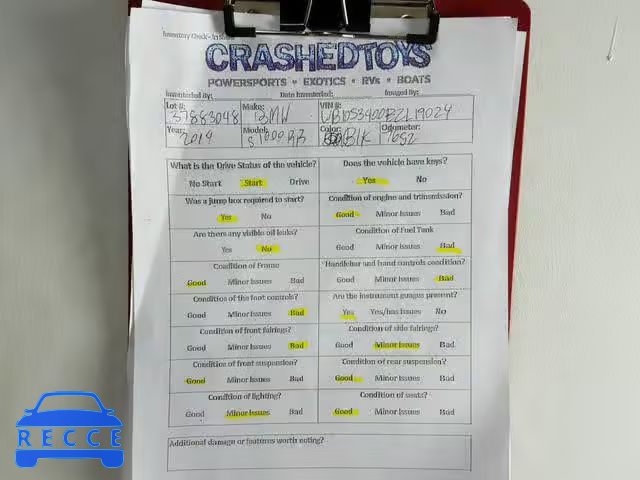 Inventory Check - In Sheet
CRASHEDTOYS
POWERSPORTS • EXOTICS • RVs • BOATS
Inventoried By: Date Inventoried: Imaged By:
Lot #: Make: VIN #:
37883048 BMW WB10S3400EZ119024
Year: Model: Color: Odometer:
2014 S1000RR Blk 7652
What is the Drive Status of the vehicle? Does the vehicle have keys?
No Start Start Drive Yes No
Was a jump box required to start? Condition of engine and transmission?
Yes No Good Minor Issues Bad
Are there any visible oil leaks? Condition of Fuel Tank
Yes No Good Minor Issues Bad
Condition of Frame Handlebar and hand controls condition?
Good Minor Issues Bad Good Minor Issues Bad
Condition of the foot controls? Are the instrument guages present?
Good Minor Issues Bad Yes Yes/has Issues No
Condition of front fairings? Condition of side fairings?
Good Minor Issues Bad Good Minor Issues Bad
Condition of front suspension? Condition of rear suspension?
Good Minor Issues Bad Good Minor Issues Bad
Condition of lighting? Condition of seats?
Good Minor Issues Bad Good Minor Issues Bad
Additional damage or features worth noting?
RECCE